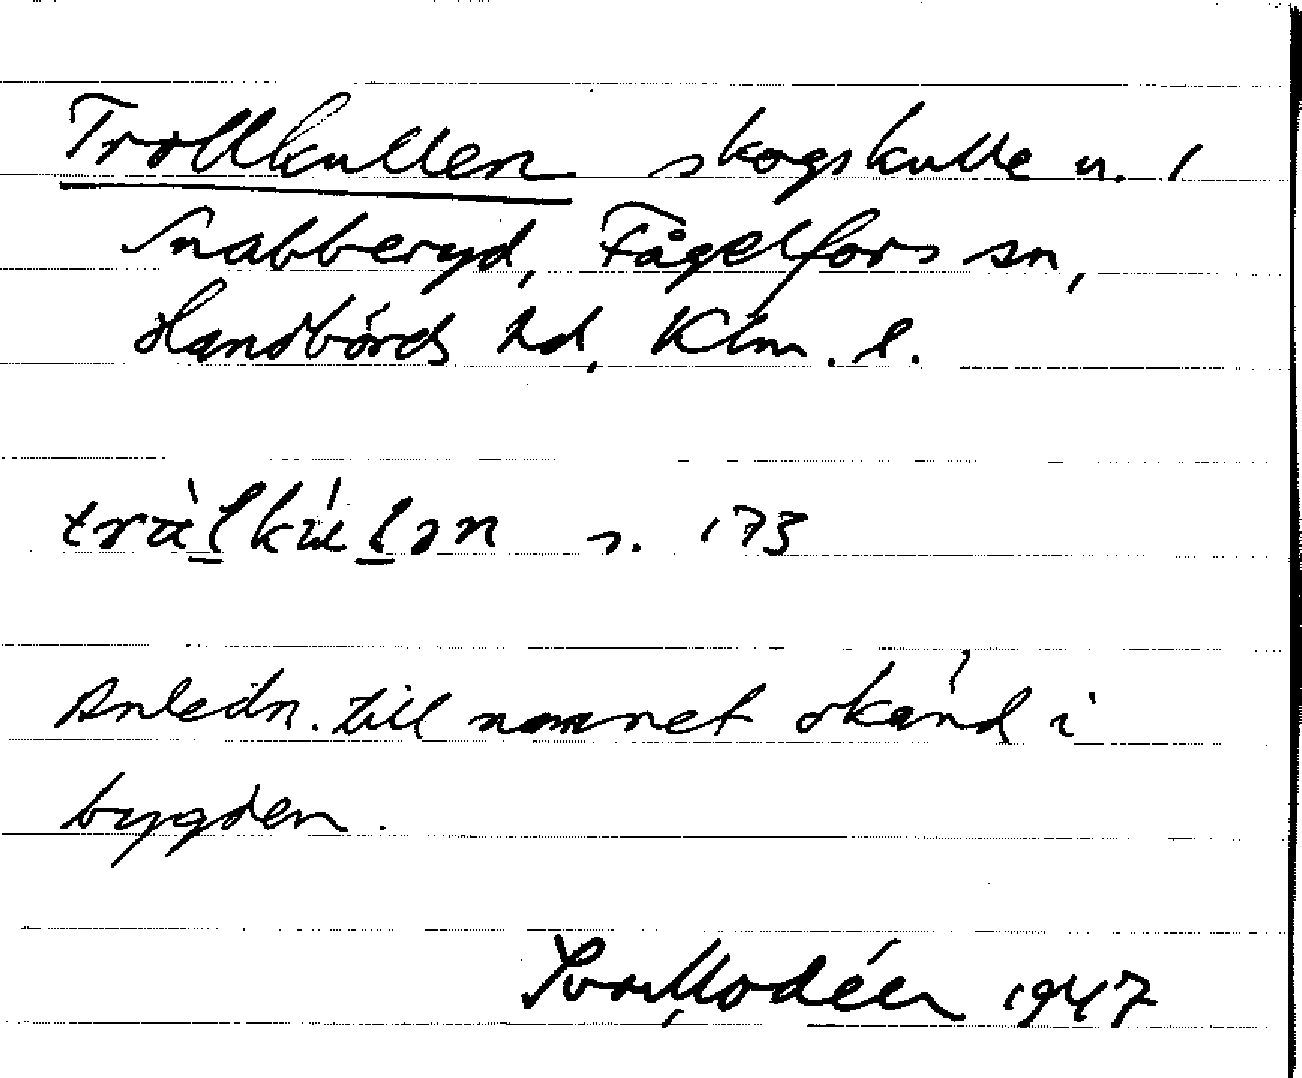 Trollkullen skogskulle u. 1
Snabberyd, Fågelfors sn,
Handbörds hd, Klm. l.
s. 173
Anledn. till namnet okänd i
bygden.
Modéer 1947